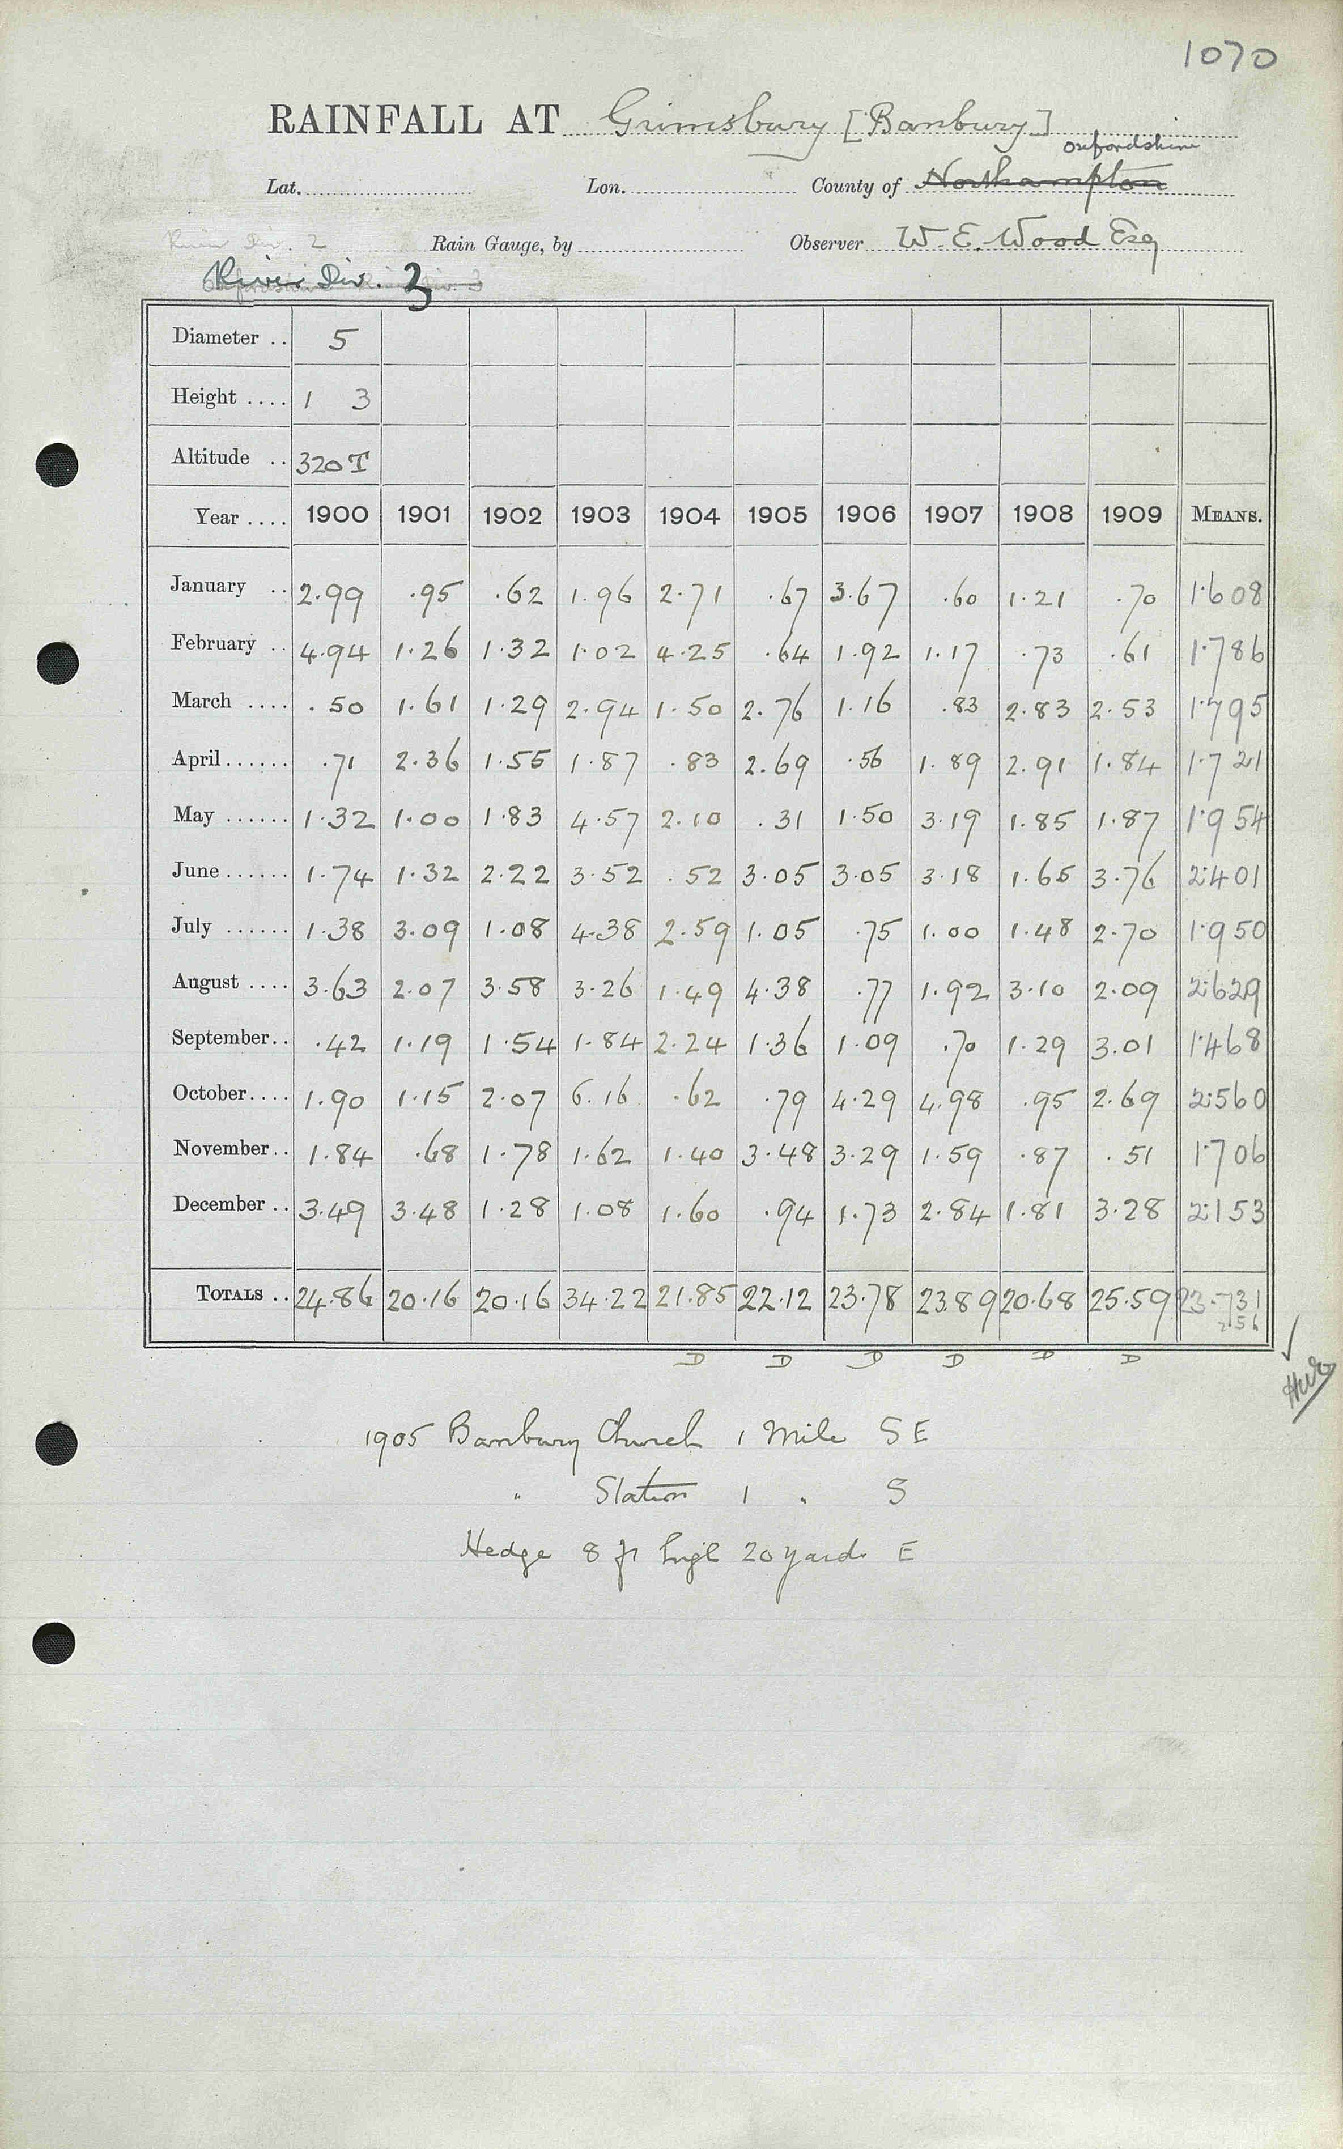 1070
RAINFALL AT Grimsbury [Banbury]
Oxfordshire
Lat. Lon. County of Northampton
River Div. 2 Rain Gauge, by Observer W. E. Wood Esq
River Div. 3
Diameter .. 5
Height .... 1 3
Altitude .. 320 T
Year .... 1900 1901 1902 1903 1904 1905 1906 1907 1908 1909 MEANS.
January .. 2.99 .95 .62 1.96 2.71 .67 3.67 .60 1.21 .70 1.608
February .. 4.94 1.26 1.32 1.02 4.25 .64 1.92 1.17 .73 .61 1.786
March .... .50 1.61 1.29 2.94 1.50 2.76 1.16 .83 2.83 2.53 1.795
April ...... .71 2.36 1.55 1.87 .83 2.69 .56 1.89 2.91 1.84 1.721
May ...... 1.32 1.00 1.83 4.57 2.10 .31 1.50 3.19 1.85 1.87 1.954
June ...... 1.74 1.32 2.22 3.52 .52 3.05 3.05 3.18 1.65 3.76 2.401
July ...... 1.38 3.09 1.08 4.38 2.59 1.05 .75 1.00 1.48 2.70 1.950
August .... 3.63 2.07 3.58 3.26 1.49 4.38 .77 1.92 3.10 2.09 2.629
September .. .42 1.19 1.54 1.84 2.24 1.36 1.09 .70 1.29 3.01 1.468
October .... 1.90 1.15 2.07 6.16 .62 .79 4.29 4.98 .95 2.69 2.560
November .. 1.84 .68 1.78 1.62 1.40 3.48 3.29 1.59 .87 .51 1.706
December .. 3.49 3.48 1.28 1.08 1.60 .94 1.73 2.84 1.81 3.28 2.153
TOTALS .. 24.86 20.16 20.16 34.22 21.85 22.12 23.78 23.89 20.68 25.59 23.731
D D D D D D
1905 Banbury Church 1 Mile SE
" Station 1 " S
Hedge 8 ft high 20 yards E